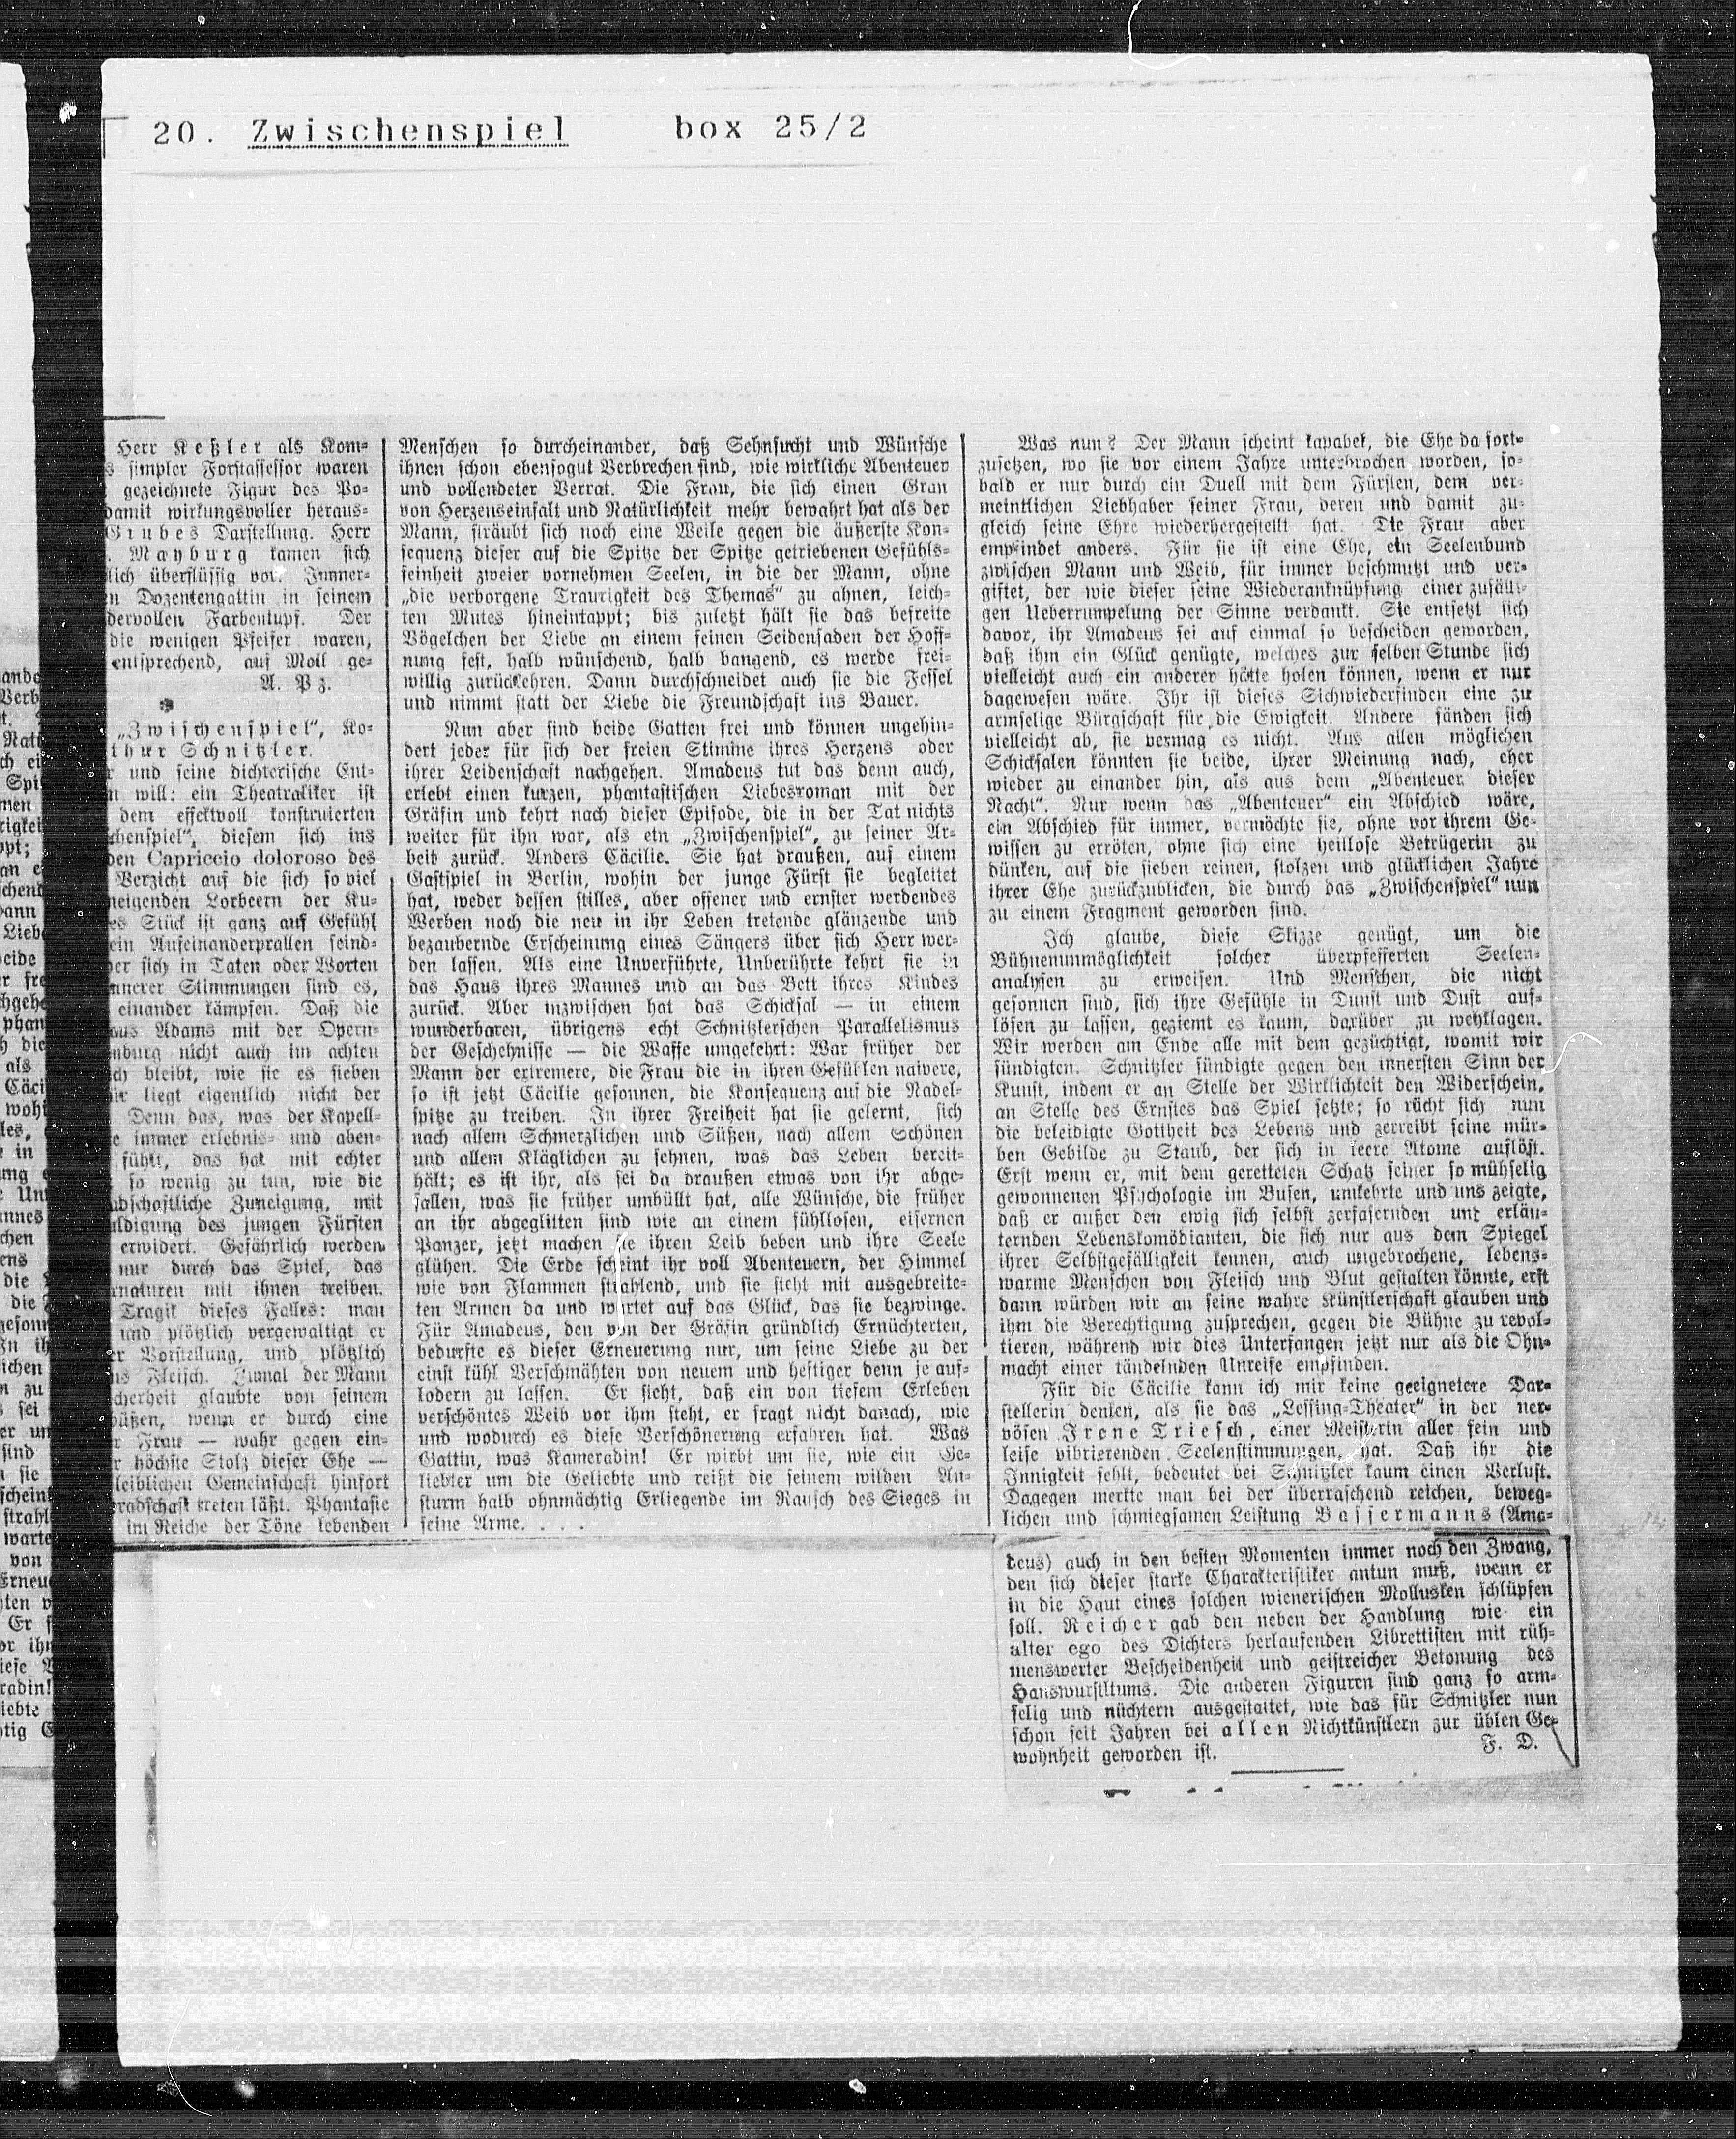 20. Zwischenspiel box 25/2
Herr Keßler als Kom-
simpler Forstassessor waren
gezeichnete Figur des Po-
damit wirkungsvoller heraus-
Grubes Darstellung. Herr
Mayburg kamen sich
lich überflüssig vor. Immer-
n Dozentengattin in seinem
dervollen Farbentupf. Der
die wenigen Pfeifer waren,
entsprechend, auf Moll ge-
A. Pz.
*
„Zwischenspiel“, Ko-
thur Schnitzler.
r und seine dichterische Ent-
n will: ein Theatraliker ist
dem effektvoll konstruierten
chenspiel“, diesem sich ins
den Capriccio doloroso des
Verzicht auf die sich so viel
neigenden Lorbeern der Ku-
es Stück ist ganz auf Gefühl
ein Aufeinanderprallen feind-
er sich in Taten oder Worten
innerer Stimmungen sind es,
einander kämpfen. Daß die
aus Adams mit der Opern-
nburg nicht auch im achten
ch bleibt, wie sie es sieben
liegt eigentlich nicht der
Denn das, was der Kapell-
e immer erlebnis- und aben-
fühlt, das hat mit echter
so wenig zu tun, wie die
dschaftliche Zuneigung, mit
ldigung des jungen Fürsten
erwidert. Gefährlich werden
nur durch das Spiel, das
rnaturen mit ihnen treiben.
Tragik dieses Falles: man
und plötzlich vergewaltigt er
er Vorstellung, und plötzlich
ns Fleisch. Zumal der Mann
cherheit glaubte von seinem
büßen, wenn er durch eine
r Frau — wahr gegen ein-
r höchste Stolz dieser Ehe —
leiblichen Gemeinschaft hinfort
eradschaft treten läßt. Phantasie
im Reiche der Töne lebenden
Menschen so durcheinander, daß Sehnsucht und Wünsche
ihnen schon ebensogut Verbrechen sind, wie wirkliche Abenteuer
und vollendeter Verrat. Die Frau, die sich einen Gran
von Herzenseinfalt und Natürlichkeit mehr bewahrt hat als der
Mann, sträubt sich noch eine Weile gegen die äußerste Kon-
sequenz dieser auf die Spitze der Spitze getriebenen Gefühls-
feinheit zweier vornehmen Seelen, in die der Mann, ohne
„die verborgene Traurigkeit des Themas“ zu ahnen, leich-
ten Mutes hineintappt; bis zuletzt hält sie das befreite
Vögelchen der Liebe an einem feinen Seidenfaden der Hoff-
nung fest, halb wünschend, halb bangend, es werde frei-
willig zurückkehren. Dann durchschneidet auch sie die Fessel
und nimmt statt der Liebe die Freundschaft ins Bauer.
Nun aber sind beide Gatten frei und können ungehin-
dert jeder für sich der freien Stimme ihres Herzens oder
ihrer Leidenschaft nachgehen. Amadeus tut das denn auch,
erlebt einen kurzen, phantastischen Liebesroman mit der
Gräfin und kehrt nach dieser Episode, die in der Tat nichts
weiter für ihn war, als ein „Zwischenspiel“, zu seiner Ar-
beit zurück. Anders Cäcilie. Sie hat draußen, auf einem
Gastspiel in Berlin, wohin der junge Fürst sie begleitet
hat, weder dessen stilles, aber offener und ernster werdendes
Werben noch die neu in ihr Leben tretende glänzende und
bezaubernde Erscheinung eines Sängers über sich Herr wer-
den lassen. Als eine Unverführte, Unberührte kehrt sie in
das Haus ihres Mannes und an das Bett ihres Kindes
zurück. Aber inzwischen hat das Schicksal — in einem
wunderbaren, übrigens echt Schnitzlerschen Parallelismus
der Geschehnisse — die Waffe umgekehrt: War früher der
Mann der extremere, die Frau die in ihren Gefühlen naivere,
so ist jetzt Cäcilie gesonnen, die Konsequenz auf die Nadel-
spitze zu treiben. In ihrer Freiheit hat sie gelernt, sich
nach allem Schmerzlichen und Süßen, nach allem Schönen
und allem Kläglichen zu sehnen, was das Leben bereit-
hält; es ist ihr, als sei da draußen etwas von ihr abge-
fallen, was sie früher umhüllt hat, alle Wünsche, die früher
an ihr abgeglitten sind wie an einem fühllosen, eisernen
Panzer, jetzt machen sie ihren Leib beben und ihre Seele
glühen. Die Erde scheint ihr voll Abenteuern, der Himmel
wie von Flammen strahlend, und sie steht mit ausgebreite-
ten Armen da und wartet auf das Glück, das sie bezwinge.
Für Amadeus, den von der Gräfin gründlich Ernüchterten,
bedurfte es dieser Erneuerung nur, um seine Liebe zu der
einst kühl Verschmähten von neuem und heftiger denn je auf-
lodern zu lassen. Er sieht, daß ein von tiefem Erleben
verschöntes Weib vor ihm steht, er fragt nicht danach, wie
und wodurch es diese Verschönerung erfahren hat. Was
Gattin, was Kameradin! Er wirbt um sie, wie ein Ge-
liebter um die Geliebte und reißt die seinem wilden An-
sturm halb ohnmächtig Erliegende im Rausch des Sieges in
seine Arme. . . .
Was nun? Der Mann scheint kapabel, die Ehe da fort-
zusetzen, wo sie vor einem Jahre unterbrochen worden, so-
bald er nur durch ein Duell mit dem Fürsten, dem ver-
meintlichen Liebhaber seiner Frau, deren und damit zu-
gleich seine Ehre wiederhergestellt hat. Die Frau aber
empfindet anders. Für sie ist eine Ehe, ein Seelenbund
zwischen Mann und Weib, für immer beschmutzt und ver-
giftet, der wie dieser seine Wiederanknüpfung einer zufälli-
gen Ueberrumpelung der Sinne verdankt. Sie entsetzt sich
davor, ihr Amadeus sei auf einmal so bescheiden geworden,
daß ihm ein Glück genügte, welches zur selben Stunde sich
vielleicht auch ein anderer hätte holen können, wenn er nur
dagewesen wäre. Ihr ist dieses Sichwiederfinden eine zu
armselige Bürgschaft für die Ewigkeit. Andere fänden sich
vielleicht ab, sie vermag es nicht. Aus allen möglichen
Schicksalen könnten sie beide, ihrer Meinung nach, eher
wieder zu einander hin, als aus dem „Abenteuer dieser
Nacht“. Nur wenn das „Abenteuer“ ein Abschied wäre,
ein Abschied für immer, vermöchte sie, ohne vor ihrem Ge-
wissen zu erröten, ohne sich eine heillose Betrügerin zu
dünken, auf die sieben reinen, stolzen und glücklichen Jahre
ihrer Ehe zurückzublicken, die durch das „Zwischenspiel“ nun
zu einem Fragment geworden sind.
Ich glaube, diese Skizze genügt, um die
Bühnenunmöglichkeit solcher überpfefferten Seelen-
analysen zu erweisen. Und Menschen, die nicht
gesonnen sind, sich ihre Gefühle in Dunst und Duft auf-
lösen zu lassen, geziemt es kaum, darüber zu wehklagen.
Wir werden am Ende alle mit dem gezüchtigt, womit wir
sündigten. Schnitzler sündigte gegen den innersten Sinn der
Kunst, indem er an Stelle der Wirklichkeit den Widerschein,
an Stelle des Ernstes das Spiel setzte; so rächt sich nun
die beleidigte Gottheit des Lebens und zerreibt seine mür-
ben Gebilde zu Staub, der sich in leere Atome auflöst.
Erst wenn er, mit dem geretteten Schatz seiner so mühselig
gewonnenen Psychologie im Busen, umkehrte und uns zeigte,
daß er außer den ewig sich selbst zerfasernden und erläu-
ternden Lebenskomödianten, die sich nur aus dem Spiegel
ihrer Selbstgefälligkeit kennen, auch ungebrochene, lebens-
warme Menschen von Fleisch und Blut gestalten könnte, erst
dann würden wir an seine wahre Künstlerschaft glauben und
ihm die Berechtigung zusprechen, gegen die Bühne zu revol-
tieren, während wir dies Unterfangen jetzt nur als die Ohn-
macht einer tändelnden Unreife empfinden.
Für die Cäcilie kann ich mir keine geeignetere Dar-
stellerin denken, als sie das „Lessing-Theater“ in der ner-
vösen Irene Triesch, einer Meisterin aller fein und
leise vibrierenden Seelenstimmungen, hat. Daß ihr die
Innigkeit fehlt, bedeutet bei Schnitzler kaum einen Verlust.
Dagegen merkte man bei der überraschend reichen, beweg-
lichen und schmiegsamen Leistung Bassermanns (Ama-
deus) auch in den besten Momenten immer noch den Zwang,
den sich dieser starke Charakteristiker antun muß, wenn er
in die Haut eines solchen wienerischen Mollusken schlüpfen
soll. Reicher gab den neben der Handlung wie ein
alter ego des Dichters herlaufenden Librettisten mit rüh-
menswerter Bescheidenheit und geistreicher Betonung des
Hanswurstltums. Die anderen Figuren sind ganz so arm-
selig und nüchtern ausgestaltet, wie das für Schnitzler nun
schon seit Jahren bei allen Nichtkünstlern zur üblen Ge-
wohnheit geworden ist. F. D.